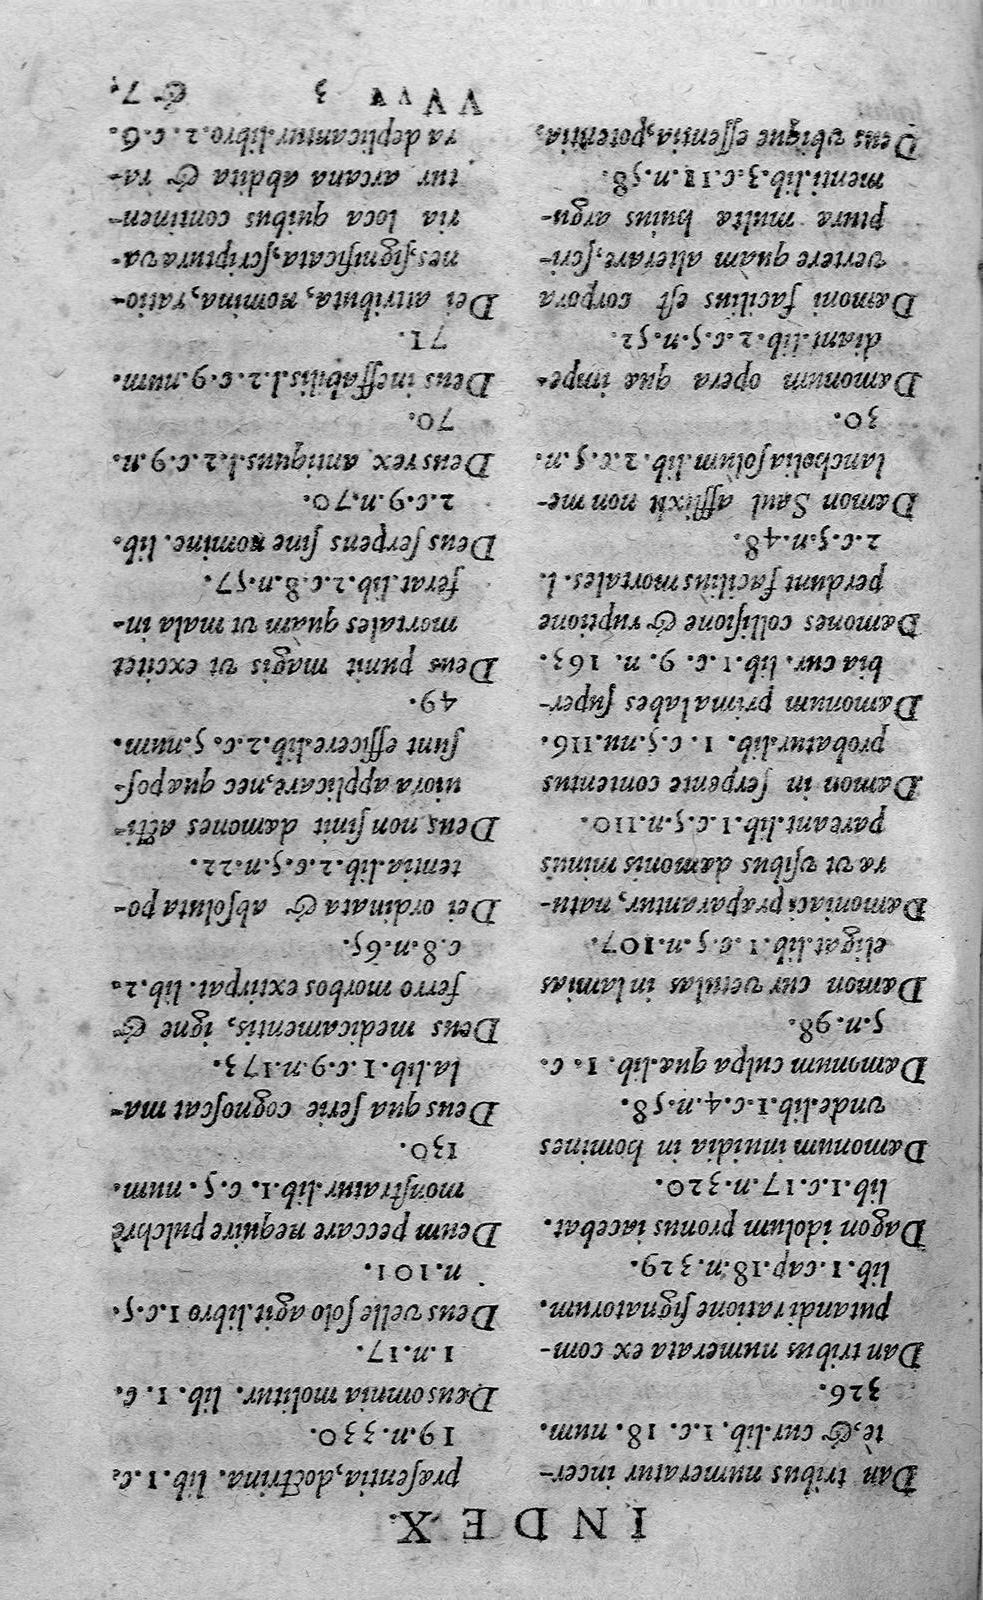 INDEX.
Dan tribus numeratur incer-
tè, & cur. lib. 1. c. 18. num.
326.
Dan tribus numerata ex com-
putandi ratione signatorum.
lib. 1. cap. 18. n. 329.
Dagon idolum pronus iacebat.
lib. 1. c. 17. n. 320.
Dæmonum inuidia in homines
vnde. lib. 1. c. 4. n. 58.
Dæmonum culpa quæ. lib. 1. c.
5. n. 98.
Dæmon cur vetulas in lamias
eligat. lib. 1. c. 5. n. 107.
Dæmoniaci præparantur, natu-
ræ vt vsibus dæmonis minus
pareant. lib. 1. c. 5. n. 110.
Dæmon in serpente contentus
probatur. lib. 1. c. 5. nu. 116.
Dæmonum prima labes super-
bia cur. lib. 1. c. 9. n. 163.
Dæmones collisione & ruptione
perdunt facilius mortales. l.
2. c. 5. n. 48.
Dæmon Saul afflixit non me-
lancholia solùm. lib. 2. c. 5. n.
30.
Dæmonum opera quæ impe-
diant. lib. 2. c. 5. n. 52.
Dæmoni facilius est corpora
vertere quàm alterare, scri-
ptura multa huius argu-
menti. lib. 3. c. 11. n. 58.
Deus vbique essentia, potentia,
præsentia, doctrina. lib. 1. c.
19. n. 330.
Deus omnia molitur. lib. 1. c.
1. n. 17.
Deus velle solo agit. libro 1 c. 5.
n. 101.
Deum peccare nequire pulchrè
monstratur. lib. 1. c. 5. num.
130.
Deus qua serie cognoscat ma-
la. lib. 1. c. 9. n. 173.
Deus medicamentis, igne &
ferro morbos extirpat. lib. 2.
c. 8. n. 65.
Dei ordinata & absoluta po-
tentia. lib. 2. c. 5. n. 22.
Deus non sinit dæmones acti-
uiora applicare, nec, quæ pos-
sunt efficere. lib. 2. c. 5. num.
49.
Deus punit magis vt excitet
mortales quàm vt mala in-
ferat. lib. 2. c. 8. n. 57.
Deus serpens sine nomine. lib.
2. c. 9. n. 70.
Deus rex antiquus. l. 2. c. 9. n.
70.
Deus ineffabilis. l. 2. c. 9. num.
71.
Dei attributa, nomina, ratio-
nes, significata, scriptura va-
ria loca quibus continen-
tur arcana abdita & ra-
ra deplicantur. libro. 2. c. 6.
VVvv 3 & 7.